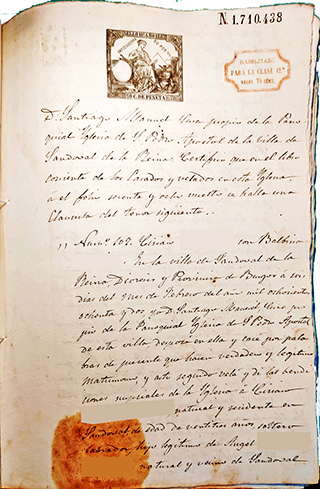 N. 1.710.438
75 C. DE PESETA
HABILITADO
PARA LA CLASE 12ª
D. Santiago Manuel Cura propio de la Parro
quial Iglesia de S. Pedro Apostol de la Villa de
Sandoval de la Reina: Certifico que en el libro
corriente de los Casados y velados en esta Iglesia
a el folio sesenta y ocho vuelto se halla una
Clausula del tenor siguiente.
" Num.º 103. Cirián con Balbina
En la villa de Sandoval de la
Reina, Diocesis y Provincia de Burgos á seis
dias del mes de Febrero del año mil ochocientos
ochenta y dos yo D. Santiago Manuel Cura pro
pio de la Parroquial Iglesia de S. Pedro Apostol
de esta villa desposé en ella y casé por pala
bras de presente que hacen verdadero y legítimo
Matrimonio, y acto seguido velé y di las bendi
ciones nupciales de la Iglesia á Cirián
natural y residente en
Sandoval de edad de veintitres años soltero
labrador hijo legítimo de Angel
natural y vecino de Sandoval